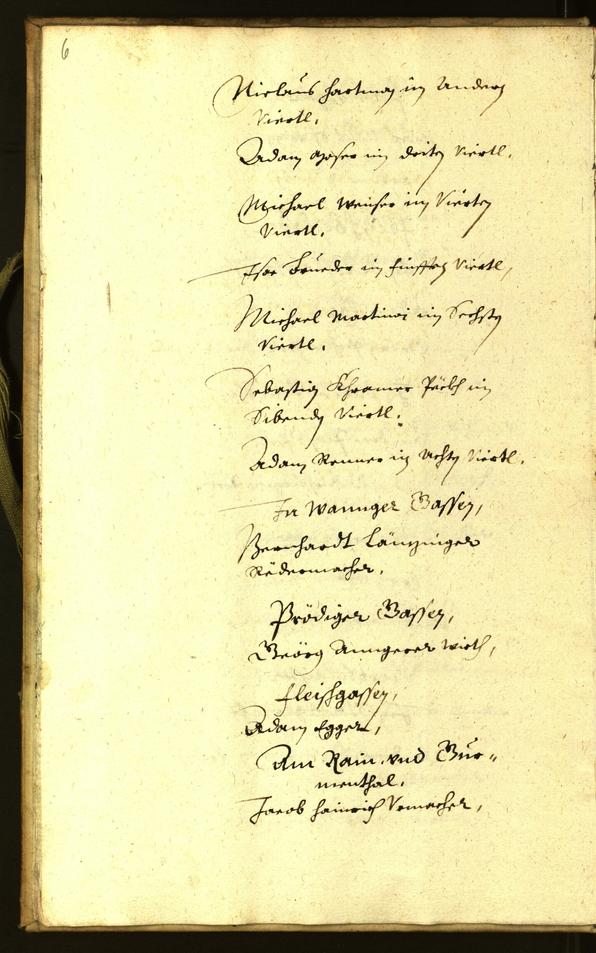 6
Niclaus Hartman im Andern
Viertl.
Adam Moser im driten Viertl.
Michael Weiser im Vierten
Viertl.
Isac Brueder im fünfften Viertl,
Michael Martinoi im Sechsten
Viertl.
Sebastian Khramer Pöckh im
Sibenden Viertl.
Adam Renner im Achten Viertl.
In Wannger Gassen,
Bernhardt Länzinger
Rädermacher,
Prödiger Gassen,
Geörg Anngerer Wirth,
Fleischgassen,
Adam Egger,
Am Rain, vnd Bur-
menthal.
Jacob Hainrich Vrmacher,